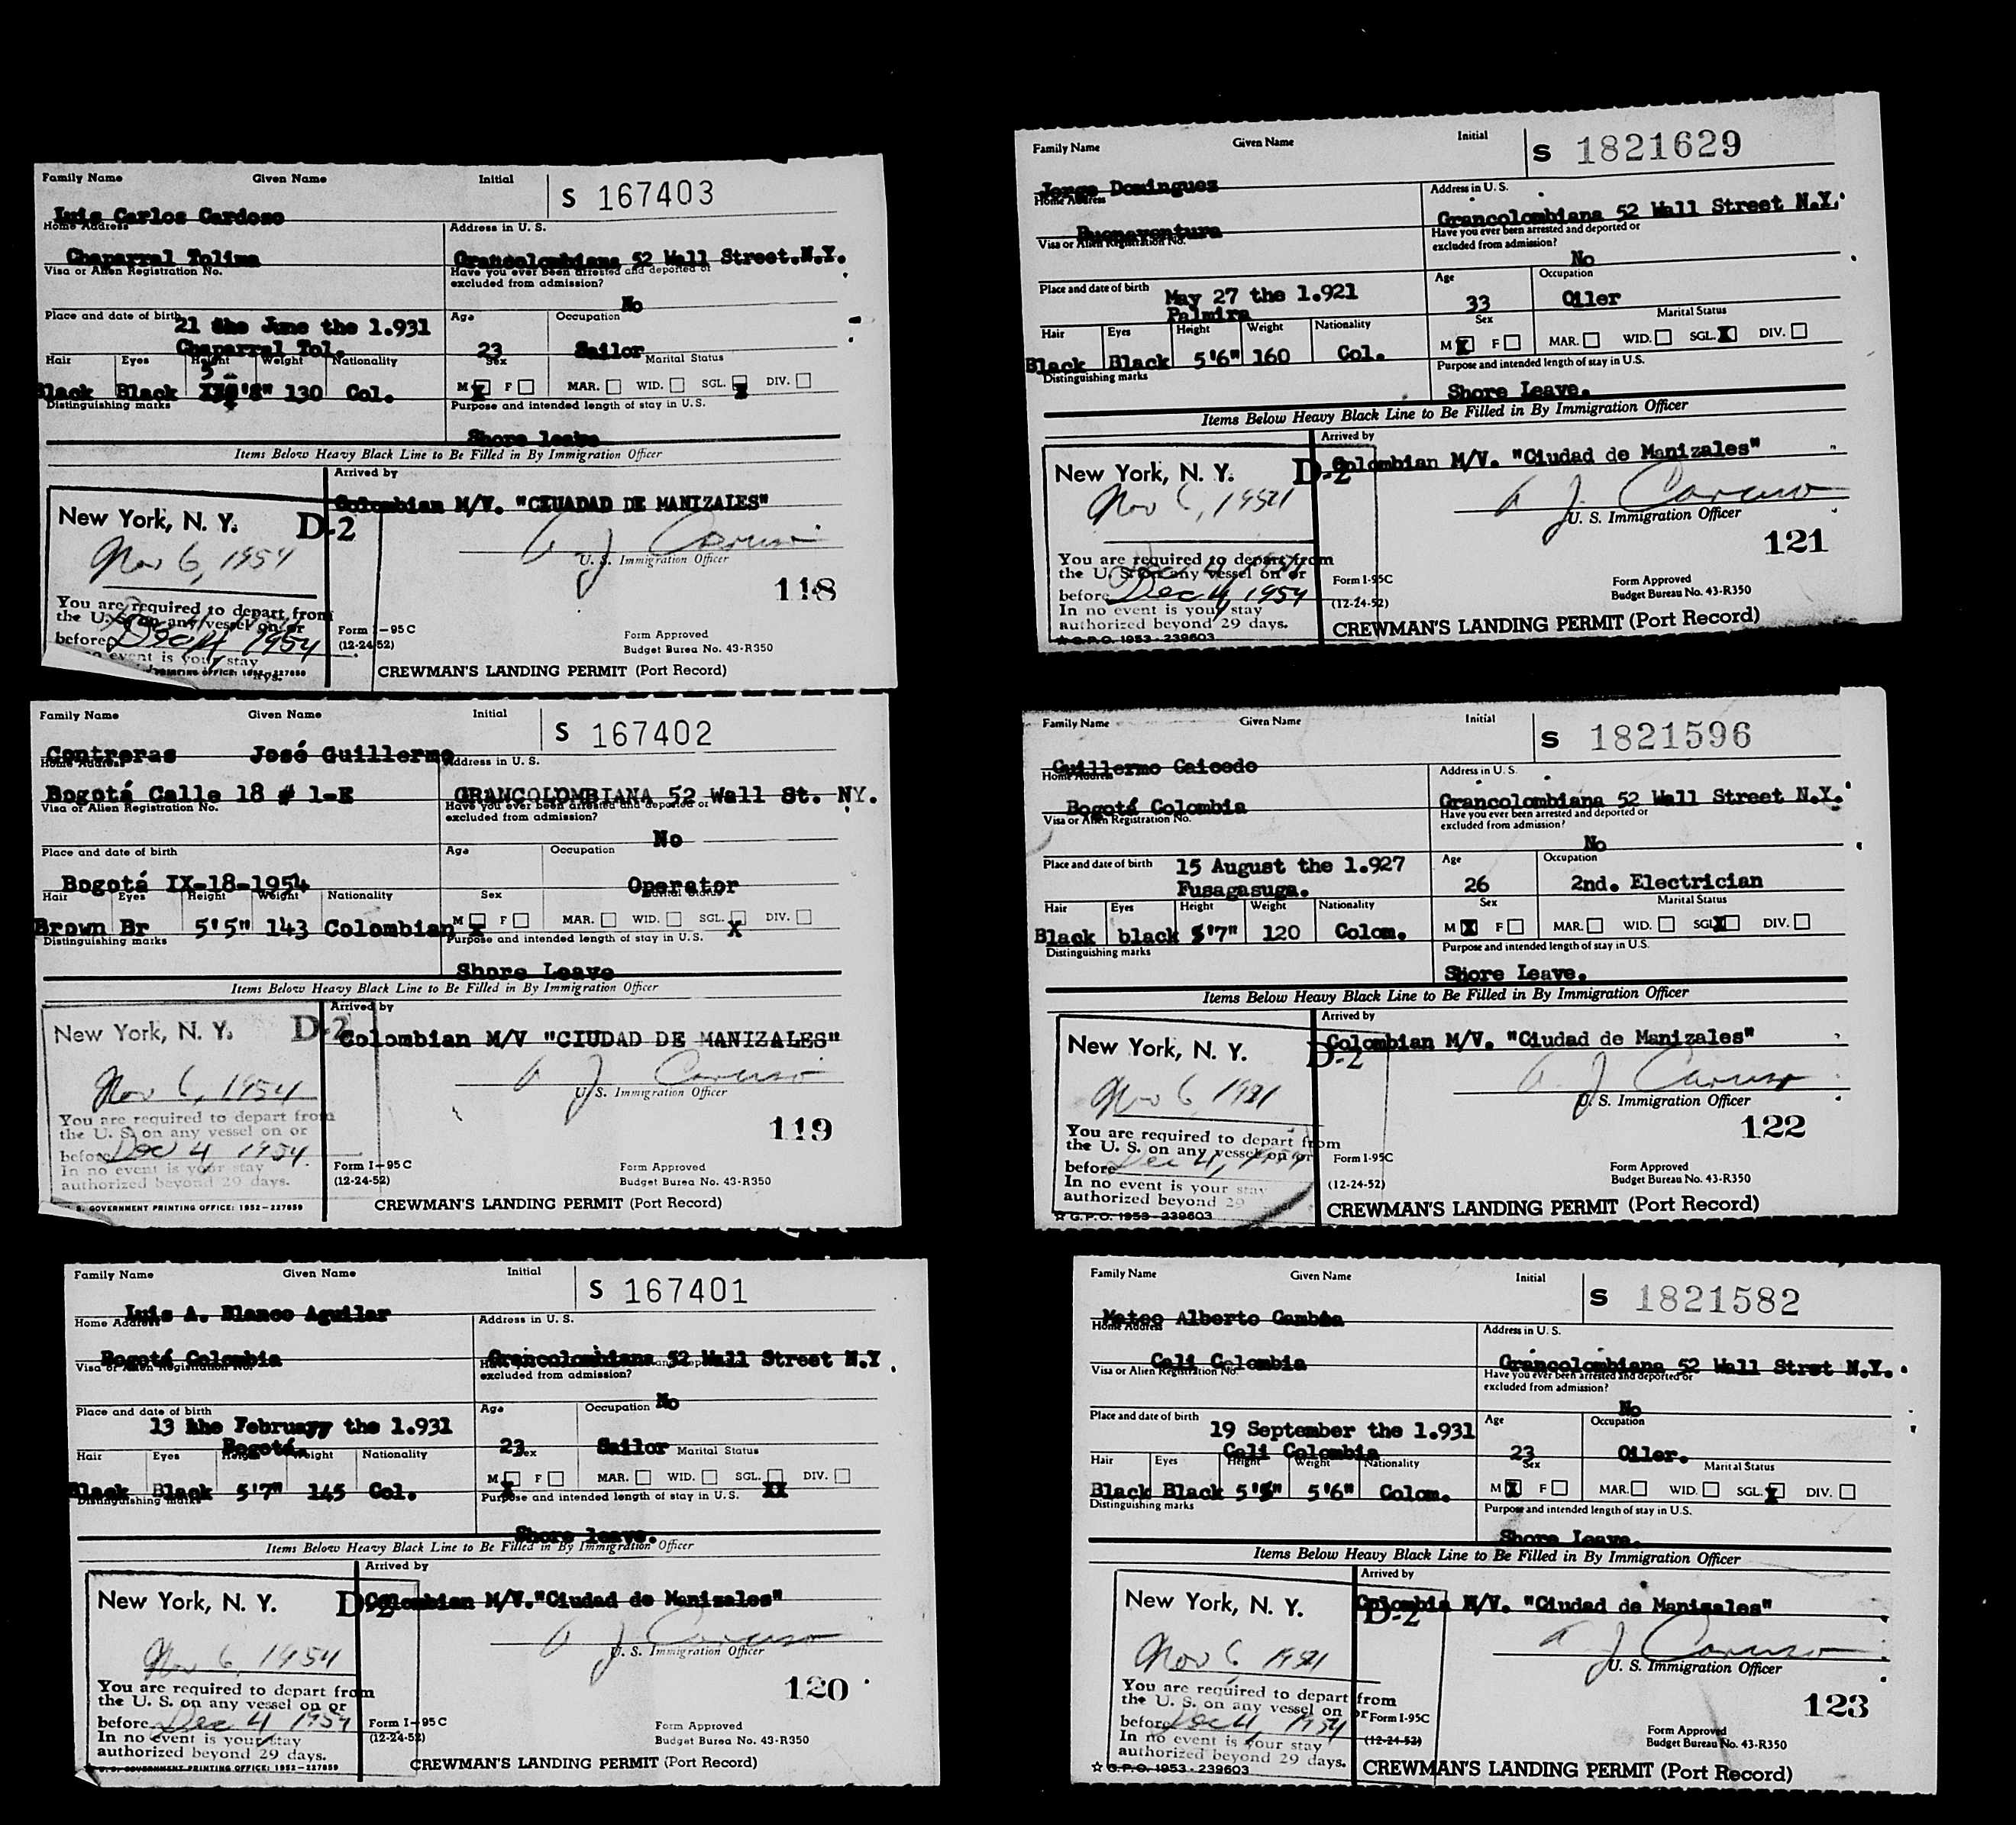 Family Name Given Name Initial
S 167403
Luis Carlos Cardoso
Home Address
Address in U. S.
Chaparral Tolima
Grancolombiana 52 Wall Street.N.Y.
Visa or Alien Registration No.
Have you ever been arrested and deported or
excluded from admission?
No
Place and date of birth
21 the June the 1.931
Age
Occupation
Chaparral Tol.
23
Sailor
Hair Eyes Height Weight Nationality
Sex
Marital Status
Black Black '8" 130 Col.
M X F MAR. WID. SGL. X DIV.
Distinguishing marks
Purpose and intended length of stay in U.S.
Shore leave
Items Below Heavy Black Line to Be Filled in By Immigration Officer
Arrived by
Colombian M/V. "CIUADAD DE MANIZALES"
New York, N. Y. D-2
Nov 6, 1954
A J Caruso
U. S. Immigration Officer
118
You are required to depart from
the U. S. on any vessel on or
before Dec 4, 1954
event is your stay
Form I-95C
(12-24-52)
Form Approved
Budget Burea No. 43-R350
CREWMAN'S LANDING PERMIT (Port Record)
Family Name Given Name Initial
S 167402
Contreras José Guillermo
Home Address
Address in U. S.
Bogotá Calle 18 # 1-E
GRANCOLOMBIANA 52 Wall St. NY.
Visa or Alien Registration No.
Have you ever been arrested and deported or
excluded from admission?
No
Place and date of birth
Age
Occupation
Bogotá IX-18-1954
Operator
Hair Eyes Height Weight Nationality
Sex
Marital Status
Brown Br 5'5" 143 Colombian
M X F MAR. WID. SGL. X DIV.
Distinguishing marks
Purpose and intended length of stay in U.S.
Shore Leave
Items Below Heavy Black Line to Be Filled in By Immigration Officer
Arrived by
Colombian M/V "CIUDAD DE MANIZALES"
New York, N. Y. D-2
Nov 6, 1954
A J Caruso
U. S. Immigration Officer
119
You are required to depart from
the U. S. on any vessel on or
before Dec 4 1954
In no event is your stay
authorized beyond 29 days.
Form I-95C
(12-24-52)
Form Approved
Budget Burea No. 43-R350
S. GOVERNMENT PRINTING OFFICE: 1952-227859
CREWMAN'S LANDING PERMIT (Port Record)
Family Name Given Name Initial
S 167401
Luis A. Blanco Aguilar
Home Address
Address in U. S.
Bogotá Colombia
Grancolombiana 52 Wall Street N.Y.
Visa or Alien Registration No.
excluded from admission?
No
Place and date of birth
13 the February the 1.931
Age
Occupation
Bogotá.
23
Sailor
Hair Eyes Height Weight Nationality
Sex
Marital Status
Black Black 5'7" 145 Col.
M X F MAR. WID. SGL. XX DIV.
Distinguishing marks
Purpose and intended length of stay in U.S.
Shore leave.
Items Below Heavy Black Line to Be Filled in By Immigration Officer
Arrived by
Colombian M/V."Ciudad de Manizales"
New York, N. Y. D-2
Nov 6, 1954
A J Caruso
U. S. Immigration Officer
120
You are required to depart from
the U. S. on any vessel on or
before Dec 4, 1954
In no event is your stay
authorized beyond 29 days.
Form I-95C
(12-24-52)
Form Approved
Budget Burea No. 43-R350
U.S. GOVERNMENT PRINTING OFFICE: 1952-227859
CREWMAN'S LANDING PERMIT (Port Record)
Family Name Given Name Initial
S 1821629
Jorge Dominguez
Home Address
Address in U. S.
Buenaventura
Grancolombiana 52 Wall Street N.Y.
Visa or Alien Registration No.
Have you ever been arrested and deported or
excluded from admission?
No
Place and date of birth
May 27 the 1.921
Palmira
Age
33
Occupation
Oiler
Hair Eyes Height Weight Nationality
Sex
Marital Status
Black Black 5'6" 160 Col.
M X F MAR. WID. SGL. X DIV.
Distinguishing marks
Purpose and intended length of stay in U.S.
Shore Leave.
Items Below Heavy Black Line to Be Filled in By Immigration Officer
Arrived by
Colombian M/V. "Ciudad de Manizales"
New York, N. Y. D-2
Nov 6, 1954
A J Caruso
U. S. Immigration Officer
121
You are required to depart from
the U. S. on any vessel on or
before Dec 4, 1954
In no event is your stay
authorized beyond 29 days.
Form I-95C
(12-24-52)
Form Approved
Budget Bureau No. 43-R350
☆ G.P.O. 1953-239603
CREWMAN'S LANDING PERMIT (Port Record)
Family Name Given Name Initial
S 1821596
Guillermo Caicedo
Home Address
Address in U. S.
Bogotá Colombia
Grancolombiana 52 Wall Street N.Y.
Visa or Alien Registration No.
Have you ever been arrested and deported or
excluded from admission?
No
Place and date of birth
15 August the 1.927
Fusagasuga.
Age
26
Occupation
2nd. Electrician
Hair Eyes Height Weight Nationality
Sex
Marital Status
Black black 5'7" 120 Colom.
M X F MAR. WID. SGL. X DIV.
Distinguishing marks
Purpose and intended length of stay in U.S.
Shore Leave.
Items Below Heavy Black Line to Be Filled in By Immigration Officer
Arrived by
Colombian M/V. "Ciudad de Manizales"
New York, N. Y. D-2
Nov 6, 1954
A. J Caruso
U. S. Immigration Officer
122
You are required to depart from
the U. S. on any vessel on or
before Dec 4, 1954
In no event is your stay
authorized beyond 29
Form I-95C
(12-24-52)
Form Approved
Budget Bureau No. 43-R350
☆ G.P.O. 1953-239603
CREWMAN'S LANDING PERMIT (Port Record)
Family Name Given Name Initial
S 1821582
Mateo Alberto
Home Address
Address in U. S.
Cali Colombia
Grancolombiana 52 Wall Stret N.Y.
Visa or Alien Registration No.
Have you ever been arrested and deported or
excluded from admission?
No
Place and date of birth
19 September the 1.931
Cali Colombia
Age
23
Occupation
Oiler.
Hair Eyes Height Weight Nationality
Sex
Marital Status
Black Black 5'5" 5'6" Colom.
M X F MAR. WID. SGL. X DIV.
Distinguishing marks
Purpose and intended length of stay in U.S.
Shore Leave.
Items Below Heavy Black Line to Be Filled in By Immigration Officer
Arrived by
Colombia M/V. "Ciudad de Manizales"
New York, N. Y. D-2
Nov 6, 1954
A J Caruso
U. S. Immigration Officer
123
You are required to depart from
the U. S. on any vessel on or
before Dec 4, 1954
In no event is your stay
authorized beyond 29 days.
Form I-95C
(12-24-52)
Form Approved
Budget Bureau No. 43-R350
☆ G.P.O. 1953-239603
CREWMAN'S LANDING PERMIT (Port Record)